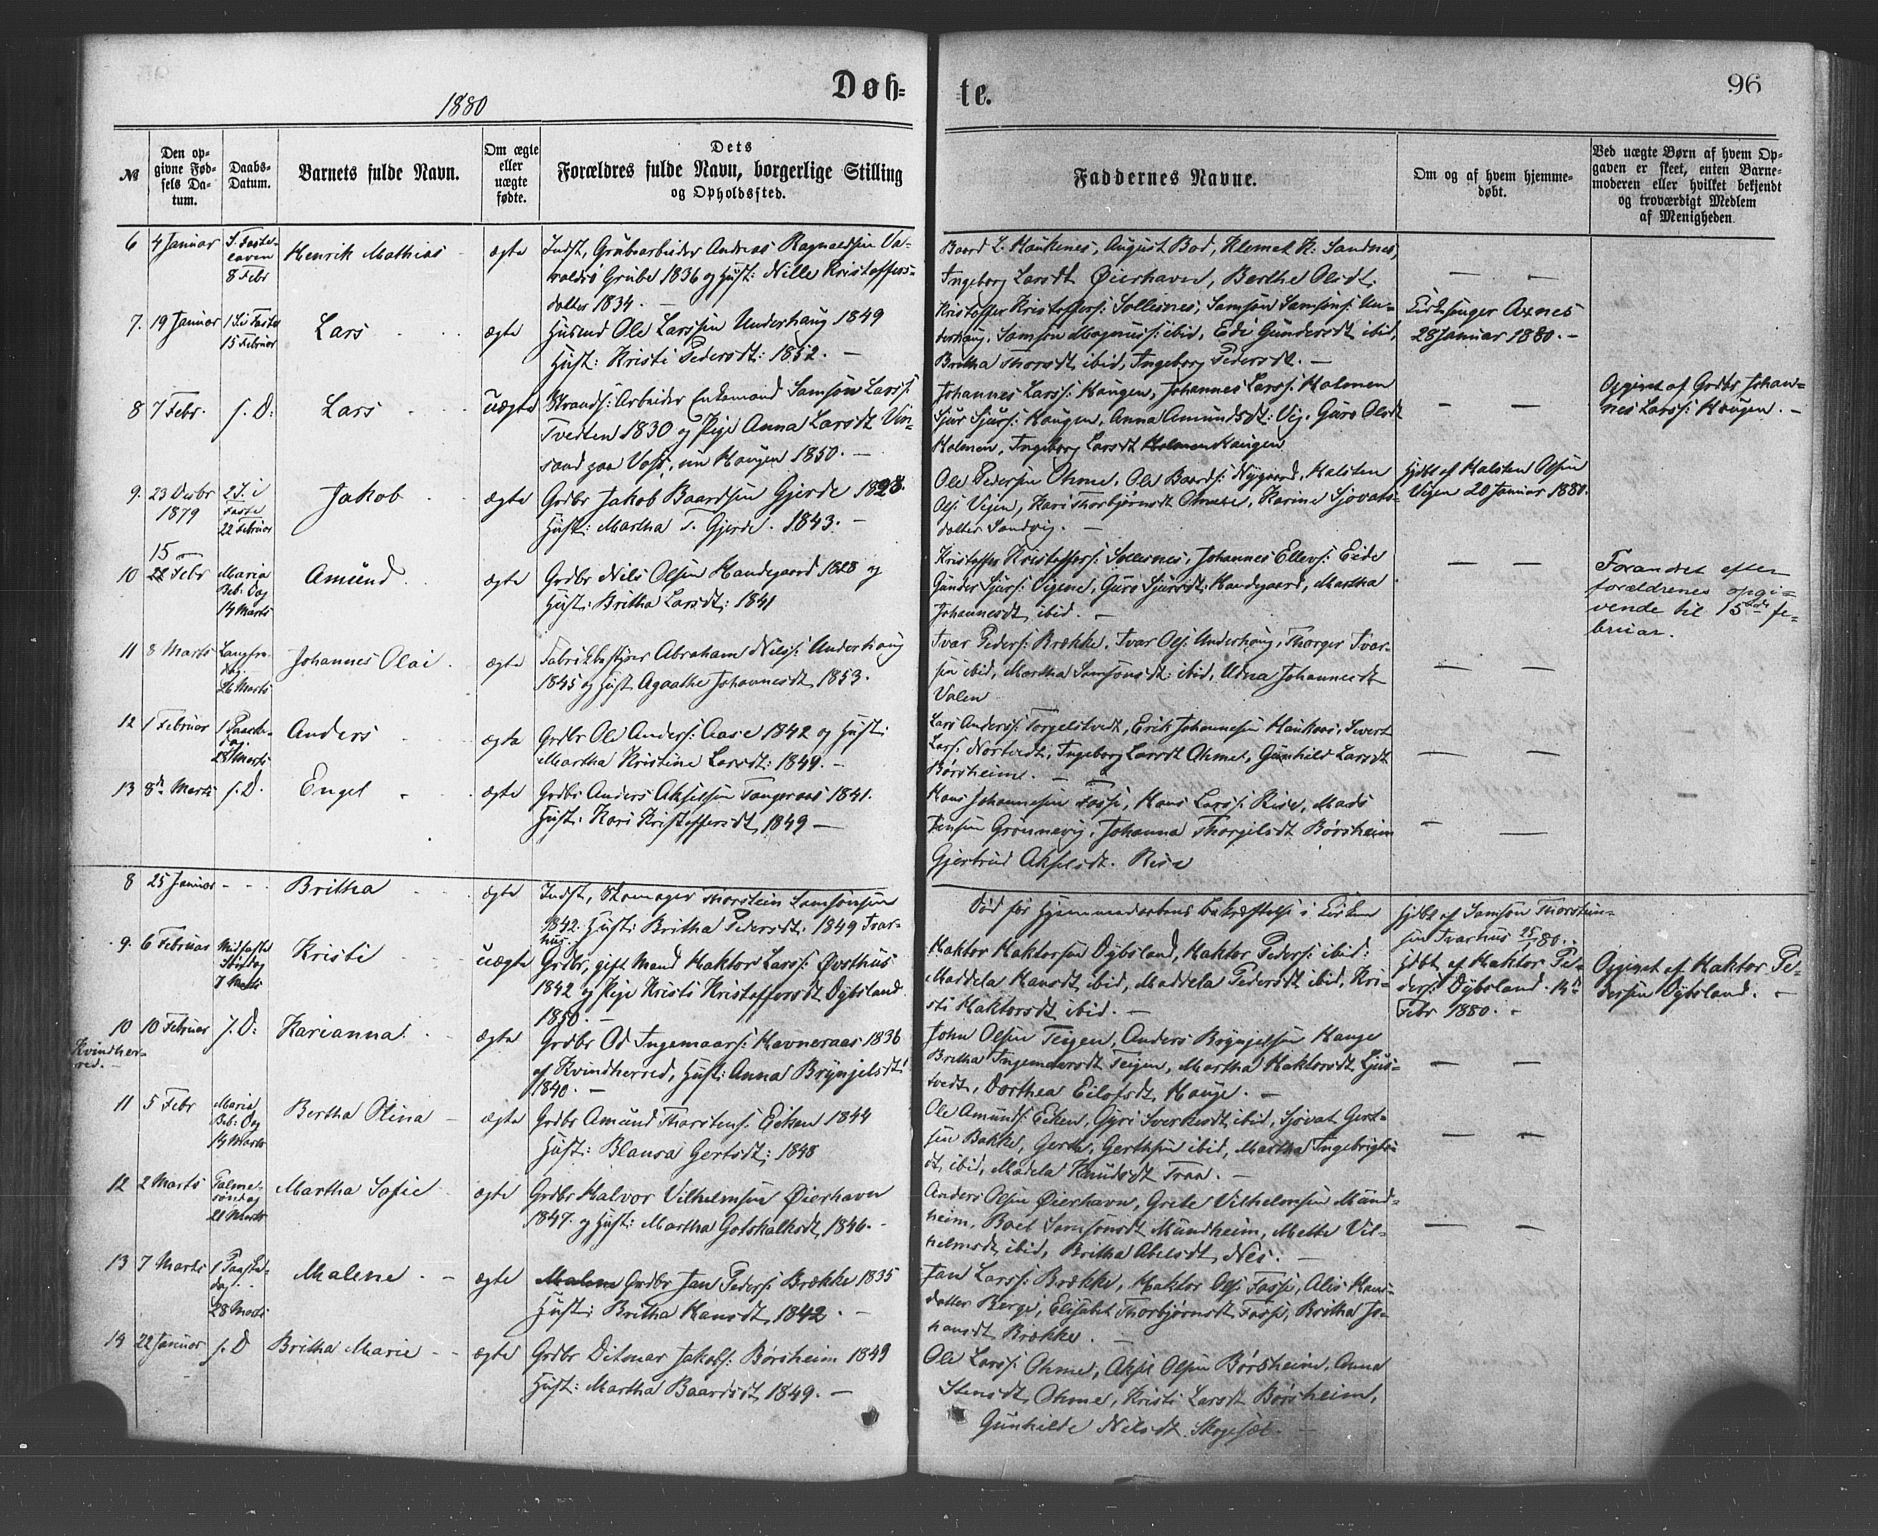 1880
Døb-
te.
96
№
Den op-
givne Fød-
sels Da-
tum.
Daabs-
Datum.
Barnets fulde Navn.
Om ægte
eller
uægte
fødte.
Dets
Forældres fulde Navn, borgerlige Stilling
og Opholdssted.
Faddernes Navne.
Om og af hvem hjemme-
døbt.
Ved uægte Børn af hvem Op-
gaven er skeet, enten Barne-
moderen eller hvilket bekjendt
og troværdigt Medlem
af Menigheden.
6 4 Januar S. Faste-
laven
8 Febr
Henrik Mathias
ægte
Indst, Grubearbeider Andreas Ragnaldsen Va-
raldsö Grube 1836 og Hust: Nille Kristoffers-
datter 1834. —
Baard L. Haukenes, August Bod, Klemet H: Sandnes,
Ingeborg Larsdt Øierhavn, Berthe Olsdt.
— —
7. 19 Januar 1 S. i Faste
15 Februar
Lars
ægte
Husmd Ole Larssen Underhaug 1849
Hust: Kristi Pedersdt: 1852. —
Kristoffer Kristoffers: Sollesnes, Samson Samsons: Un-
derhaug, Samson Magnuss: ibid, Eli Gundersdt ibid,
Britha Thorsdt ibid, Ingeborg Pedersdt. —
Kirkesanger Axnes
28 Januar 1880. —
8 7 Febr. s. D:
Lars
uægte
Strands: Arbeider Enkemand Samson Larss:
Tvedten 1830 og Pige Anna Larsdt Vin-
sand paa Voss, nu Haugen 1850. —
Johannes Larss: Haugen, Johannes Larss: Holmen
Sjur Sjurs: Haugen, Anna Amundsdt: Vig, Guro Olsdt
Holmen, Ingeborg Larsdt Holmen Haugen
— —
Opgivet af Grdbr Johan-
nes Larss: Haugen. —
9. 23 Decbr
1879
2 S. i
Faste
22 Februar
Jakob
ægte
Grdbr Jakob Baardsen Gjerde 1828.
Hust: Martha T. Gjerde. 1843. —
Ole Pedersen Ohme, Ole Baards: Nygaard, Halsten
Ols: Vigen, Kari Thorbjørnsdt Omme, Karine Sjovats-
datter Sandvig. —
hjdbt af Halsten Olsen
Vigen 20 Januar 1880.
15
10 22 Febr Maria
Beb: Dag
14 Marts
Amund
ægte
Grdbr Nils Olsen Handegaard 1828 og
Hust: Britha Larsdt: 1841
Kristoffer Kristoffers: Sollesnes, Johannes Ellevs: Eide
Gunder Sjurs: Vigene, Guro Sjursdt: Handegaard, Martha
Johannesdt ibid. —
— —
Forandret efter
forældrenes opgi-
vende til 15de fe-
bruar.
11 8 Marts Langfre-
dag
26 Marts
Johannes Olai
ægte
Fabrikbestyrer Abraham Nilss: Underhaug
1845 og Hust Agaathe Johannesdt, 1853.
Ivar Peders: Brække, Ivar Ols: Underhaug, Thorger Ivar-
sen ibid, Martha Samsonsdt: ibid, Anna Johannesdt
Valen
— —
12 1 Februar 1 Paaske-
dag
28 Marts
Anders
ægte
Grdbr Ole Anders: Aase 1842 og Hust:
Martha Kristine Larsdt: 1849. —
Lars Anderss: Torgelstvedt, Erik Johannesen Haukaas, Sivert
Lars: Nortvedt, Ingeborg Larsdt Ohmet, Gunhild Larsdt
Børsheim. — —
— —
13 8de Marts s. D.
Engel
ægte
Grdbr Anders Akselsen Tangeraas 1841.
Hust: Kari Kristoffersdt, 1849 —
Hans Johannesen Fosse, Hans Larss: Rise, Mads
Jensen Grønnevig, Johanna Thorgilsdt Børsheim
Gjertrud Akselsdt. Rise
— —
8 25 Januar - - -
Britha
ægte
Indst, Skomager Thorstein Samsonsen
1842. Hust: Britha Pedersdt: 1849 Tvar-
hus.
Død før Hjemmedaabens bekræftelse i Kirken
hjdbt af Samson Thorstein-
sen Tvarhus 25/1 80. -
9. 6 Februar Midfaste
Søndag
7 Marts
Kristi
uægte
Grdbr, gift Mand Haktor Larss: Øvsthus
1842 og Pige Kristi Kristoffersdt Dybsland
1850. —
Haktor Haktorsen Dybsland, Haktor Peders: ibid:
Maddela Hansdt, ibid, Maddela Pedersdt ibid, Kri-
sti Haktorsdt ibid. —
hjdbt af Haktor Pe-
ders: Dybsland. 14de
Febr 1880. -
Opgivet af Haktor Pe-
dersen Dybsland. —
10 10 Februar s. D:
Kvindher-
red. —
Karianna
ægte
Grdbr Od Ingemaars: Havneraas 1836
af Kvindherred, Hust: Anna Brynjelsdt:
1840. —
John Olsen Teigen, Anders Brynjelsen Hauge
Britha Ingemarsdt Teigen, Martha Haktorsdt Ljus-
tvedt, Dorthea Eilofsdt. Hauge. —
— —
11 5 Febr Maria
Beb: Dag
14 Marts
Bertha Olina
ægte
Grdbr Amund Thorstens: Eeken 1844
Hust: Blansa Gertsdt: 1848
Ole Amunds: Eeken, Gyri Sverkesdt, ibid, Sjovat Gert-
sen Bakke, Gerthe, Gerthsen ibid, Martha Ingebrigts-
dt, ibid, Madela Knudsdt Traa. —
— —
12 2 Marts Palme-
søndag
21 Marts
Martha Sofie
ægte
Grdbr Halvor Vilhelmsen Øierhavn
1847. og Hust: Martha Gotskalksdt, 1846. —
Anders Olsen Øierhavn, Grete Vilhelmsen Mund-
heim, Boel Samsonsdt Mundheim, Mette Vil-
helmsdt, ibid, Britha Abelsdt, Nes. —
— —
13 7 Marts 1 Paaske-
dag
28 Marts
Malene
ægte
Malene Grdbr Jan Peders: Brække 1835
Hust: Britha Hansdt, 1842. —
Jan Larss: Brække, Haktor Ols: Fosse, Alis Hans-
datter Berge, Elisabet Thorbjørnsdt Fosse, Britha Jo-
hansdt Brække. —
14 22 Januar s. D
Britha Marie
ægte
Grdbr Ditmar Jakobs: Børsheim 1849
Hust: Martha Baardsdt, 1849. —
Ole Larss: Ohme, Aksel Olsen Børsheim, Anna
Stensdt, Ohme, Kristi Larsdt Børsheim,
Gunhilde Nilsdt. Skogesæl. —